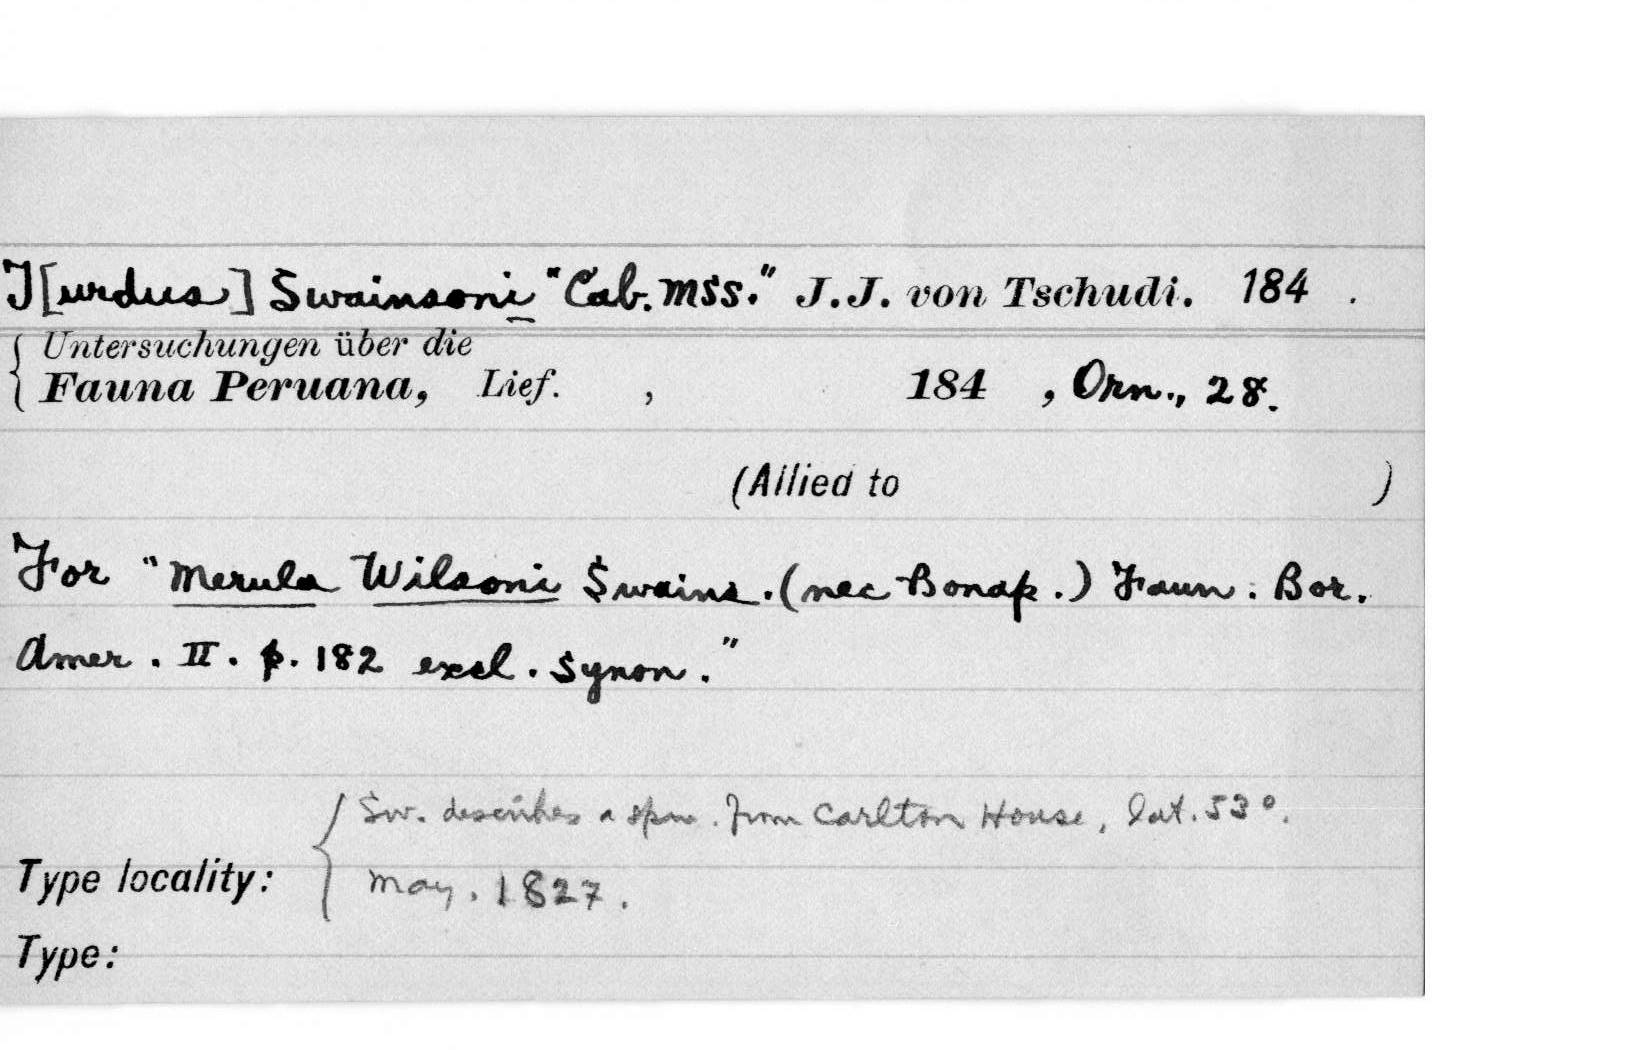 T[urdus] Swainsoni "Cab. mss." J.J. von Tschudi. 184 .
Untersuchungen über die
Fauna Peruana, Lief. , 184 , Orn., 28.
(Allied to )
For "Merula Wilsoni Swains. (nec Bonap.) Faun. Bor.
Amer. II. p. 182 excl. Synon."
Sw. describes a spm. from Carlton House, lat. 53°.
Type locality: May. 1827.
Type: